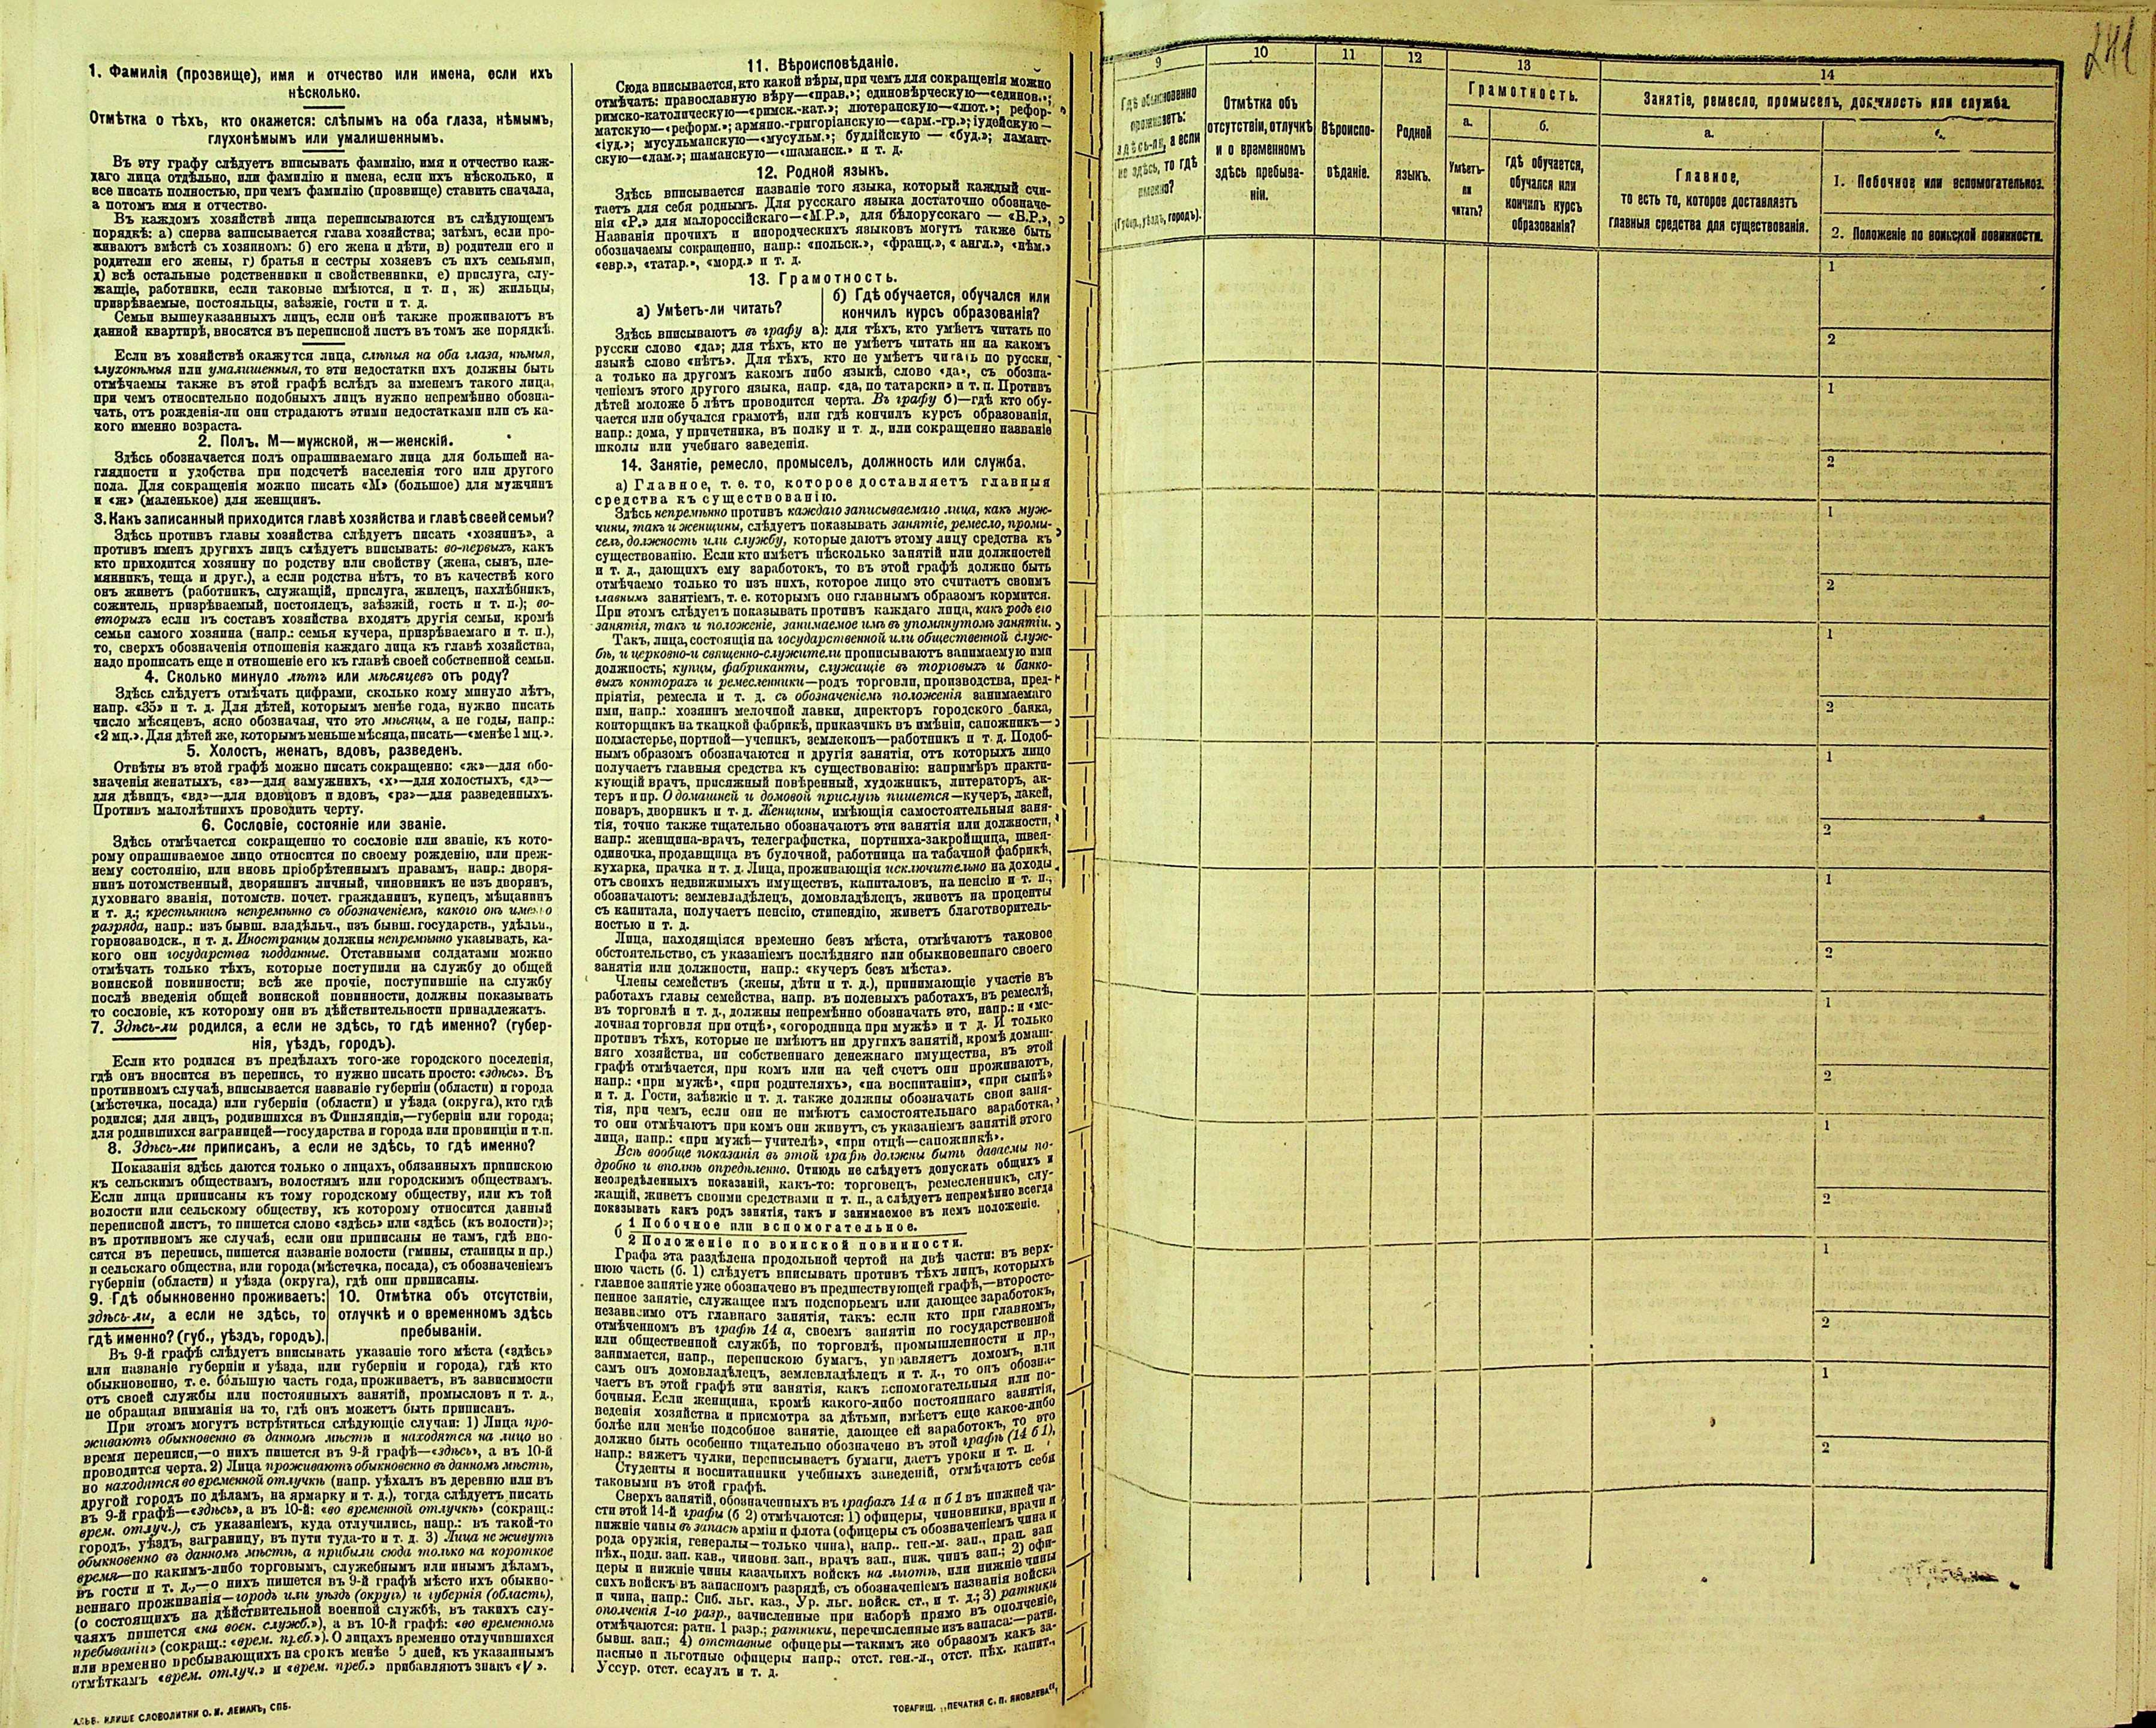 1. Фамилія (прозвище), имя и отчество или имена, если ихъ
нѣсколько.
Отмѣтка о тѣхъ, кто окажется: слѣпымъ на оба глаза, нѣмымъ,
глухонѣмымъ или умалишеннымъ.
Въ эту графу слѣдуетъ вписывать фамилію, имя и отчество каж-
даго лица отдѣльно, или фамилію и имена, если ихъ нѣсколько, и
все писать полностью, при чемъ фамилію (прозвище) ставить сначала,
а потомъ имя и отчество.
Въ каждомъ хозяйствѣ лица переписываются въ слѣдующемъ
порядкѣ: а) сперва записывается глава хозяйства; затѣмъ, если про-
живаютъ вмѣстѣ съ хозяиномъ: б) его жена и дѣти, в) родители его и
родители его жены, г) братья и сестры хозяевъ съ ихъ семьями,
д) всѣ остальные родственники и свойственники, е) прислуга, слу-
жащіе, работники, если таковые имѣются, и т. п, ж) жильцы,
призрѣваемые, постояльцы, заѣзжіе, гости и т. д.
Семьи вышеуказанныхъ лицъ, если онѣ также проживаютъ въ
данной квартирѣ, вносятся въ переписной листъ въ томъ же порядкѣ.
Если въ хозяйствѣ окажутся лица, слѣпыя на оба глаза, нѣмыя,
глухонѣмыя или умалишенныя, то эти недостатки ихъ должны быть
отмѣчаемы также въ этой графѣ вслѣдъ за именемъ такого лица,
при чемъ относительно подобныхъ лицъ нужно непремѣнно обозна-
чать, отъ рожденія-ли они страдаютъ этими недостатками или съ ка-
кого именно возраста.
2. Полъ. М—мужской, ж—женскій.
Здѣсь обозначается полъ опрашиваемаго лица для большей на-
глядности и удобства при подсчетѣ населенія того или другого
пола. Для сокращенія можно писать «М» (большое) для мужчинъ
и «ж» (маленькое) для женщинъ.
3. Какъ записанный приходится главѣ хозяйства и главѣ своей семьи?
Здѣсь противъ главы хозяйства слѣдуетъ писать «хозяинъ», а
противъ именъ другихъ лицъ слѣдуетъ вписывать: во-первыхъ, какъ
кто приходится хозяину по родству или свойству (жена, сынъ, пле-
мянникъ, теща и друг.), а если родства нѣтъ, то въ качествѣ кого
онъ живетъ (работникъ, служащій, прислуга, жилецъ, нахлѣбникъ,
сожитель, призрѣваемый, постоялецъ, заѣзжій, гость и т. п.); во-
вторыхъ если въ составъ хозяйства входятъ другія семьи, кромѣ
семьи самого хозяина (напр.: семья кучера, призрѣваемаго и т. п.),
то, сверхъ обозначенія отношенія каждаго лица къ главѣ хозяйства,
надо прописать еще и отношеніе его къ главѣ своей собственной семьи.
4. Сколько минуло лѣтъ или мѣсяцевъ отъ роду?
Здѣсь слѣдуетъ отмѣчать цифрами, сколько кому минуло лѣтъ,
напр. «35» и т. д. Для дѣтей, которымъ менѣе года, нужно писать
число мѣсяцевъ, ясно обозначая, что это мѣсяцы, а не годы, напр.:
«2 мц.». Для дѣтей же, которымъ меньше мѣсяца, писать—«менѣе 1 мц.».
5. Холостъ, женатъ, вдовъ, разведенъ.
Отвѣты въ этой графѣ можно писать сокращенно: «ж»—для обо-
значенія женатыхъ, «з»—для замужнихъ, «х»—для холостыхъ, «д»—
для дѣвицъ, «вд»—для вдовцовъ и вдовъ, «рз»—для разведенныхъ.
Противъ малолѣтнихъ проводить черту.
6. Сословіе, состояніе или званіе.
Здѣсь отмѣчается сокращенно то сословіе или званіе, къ кото-
рому опрашиваемое лицо относится по своему рожденію, или преж-
нему состоянію, или вновь пріобрѣтеннымъ правамъ, напр.: дворя-
нинъ потомственный, дворянинъ личный, чиновникъ не изъ дворянъ,
духовнаго званія, потомств. почет. гражданинъ, купецъ, мѣщанинъ
и т. д.; крестьянинъ непремѣнно съ обозначеніемъ, какого онъ именно
разряда, напр.: изъ бывш. владѣльч., изъ бывш. государств., удѣльн.,
горнозаводск., и т. д. Иностранцы должны непремѣнно указывать, ка-
кого они государства подданные. Отставными солдатами можно
отмѣчать только тѣхъ, которые поступили на службу до общей
воинской повинности; всѣ же прочіе, поступившіе на службу
послѣ введенія общей воинской повинности, должны показывать
то сословіе, къ которому они въ дѣйствительности принадлежатъ.
7. Здѣсь-ли родился, а если не здѣсь, то гдѣ именно? (губер-
нія, уѣздъ, городъ).
Если кто родился въ предѣлахъ того-же городского поселенія,
гдѣ онъ вносится въ перепись, то нужно писать просто: «здѣсь». Въ
противномъ случаѣ, вписывается названіе губерніи (области) и города
(мѣстечка, посада) или губерніи (области) и уѣзда (округа), кто гдѣ
родился; для лицъ, родившихся въ Финляндіи,—губерніи или города;
для родившихся заграницей—государства и города или провинціи и т.п.
8. Здѣсь-ли приписанъ, а если не здѣсь, то гдѣ именно?
Показанія здѣсь даются только о лицахъ, обязанныхъ припискою
къ сельскимъ обществамъ, волостямъ или городскимъ обществамъ.
Если лица приписаны къ тому городскому обществу, или къ той
волости или сельскому обществу, къ которому относится данный
переписной листъ, то пишется слово «здѣсь» или «здѣсь (къ волости)»;
въ противномъ же случаѣ, если они приписаны не тамъ, гдѣ вно-
сятся въ перепись, пишется названіе волости (гмины, станицы и пр.)
и сельскаго общества, или города (мѣстечка, посада), съ обозначеніемъ
губерніи (области) и уѣзда (округа), гдѣ они приписаны.
9. Гдѣ обыкновенно проживаетъ:
здѣсь-ли, а если не здѣсь, то
гдѣ именно? (губ., уѣздъ, городъ).
10. Отмѣтка объ отсутствіи,
отлучкѣ и о временномъ здѣсь
пребываніи.
Въ 9-й графѣ слѣдуетъ вписывать указаніе того мѣста («здѣсь»
или названіе губерніи и уѣзда, или губерніи и города), гдѣ кто
обыкновенно, т. е. бо́льшую часть года, проживаетъ, въ зависимости
отъ своей службы или постоянныхъ занятій, промысловъ и т. д.,
не обращая вниманія на то, гдѣ онъ можетъ быть приписанъ.
При этомъ могутъ встрѣтиться слѣдующіе случаи: 1) Лица про-
живаютъ обыкновенно въ данномъ мѣстѣ и находятся на лицо во
время переписи,—о нихъ пишется въ 9-й графѣ—«здѣсь», а въ 10-й
проводится черта. 2) Лица проживаютъ обыкновенно въ данномъ мѣстѣ,
но находятся во временной отлучкѣ (напр. уѣхалъ въ деревню или въ
другой городъ по дѣламъ, на ярмарку и т. д.), тогда слѣдуетъ писать
въ 9-й графѣ—«здѣсь», а въ 10-й: «во временной отлучкѣ» (сокращ.:
врем. отлуч.), съ указаніемъ, куда отлучились, напр.: въ такой-то
городъ, уѣздъ, заграницу, въ пути туда-то и т. д. 3) Лица не живутъ
обыкновенно въ данномъ мѣстѣ, а прибыли сюда только на короткое
время—по какимъ-либо торговымъ, служебнымъ или инымъ дѣламъ,
въ гости и т. д.,—о нихъ пишется въ 9-й графѣ мѣсто ихъ обыкно-
веннаго проживанія—городъ или уѣздъ (округъ) и губернія (область),
(о состоящихъ на дѣйствительной военной службѣ, въ такихъ слу-
чаяхъ пишется «на воен. служб.»), а въ 10-й графѣ: «во временномъ
пребываніи» (сокращ.: «врем. преб.»). О лицахъ временно отлучившихся
или временно пребывающихъ на срокъ менѣе 5 дней, къ указаннымъ
отмѣткамъ «врем. отлуч.» и «врем. преб.» прибавляютъ знакъ «V».
КЛИШЕ СЛОВОЛИТНИ О. И. ЛЕМАНЪ, СПБ.
11. Вѣроисповѣданіе.
Сюда вписывается, кто какой вѣры, при чемъ для сокращенія можно
отмѣчать: православную вѣру—«прав.»; единовѣрческую—«единов.»;
римско-католическую—«римск.-кат.»; лютеранскую—«лют.»; рефор-
матскую—«реформ.»; армяно.-григоріанскую—«арм.-гр.»; іудейскую—
«іуд.»; мусульманскую—«мусульм.»; буддійскую — «буд.»; ламаит-
скую—«лам.»; шаманскую—«шаманск.» и т. д.
12. Родной языкъ.
Здѣсь вписывается названіе того языка, который каждый счи-
таетъ для себя роднымъ. Для русскаго языка достаточно обозначе-
нія «Р.» для малороссійскаго—«М.Р.», для бѣлорусскаго — «Б.Р.»,
Названія прочихъ и инородческихъ языковъ могутъ также быть
обозначаемы сокращенно, напр.: «польск.», «франц.», « англ.», «нѣм.»
«евр.», «татар.», «морд.» и т. д.
13. Грамотность.
а) Умѣетъ-ли читать?
б) Гдѣ обучается, обучался или
кончилъ курсъ образованія?
Здѣсь вписываютъ въ графу а): для тѣхъ, кто умѣетъ читать по
русски слово «да»; для тѣхъ, кто не умѣетъ читать ни на какомъ
языкѣ слово «нѣтъ». Для тѣхъ, кто не умѣетъ читать по русски,
а только на другомъ какомъ либо языкѣ, слово «да», съ обозна-
ченіемъ этого другого языка, напр. «да, по татарски» и т. п. Противъ
дѣтей моложе 5 лѣтъ проводится черта. Въ графу б)—гдѣ кто обу-
чается или обучался грамотѣ, или гдѣ кончилъ курсъ образованія,
напр.: дома, у причетника, въ полку и т. д., или сокращенно названіе
школы или учебнаго заведенія.
14. Занятіе, ремесло, промыселъ, должность или служба.
а) Главное, т. е. то, которое доставляетъ главныя
средства къ существованію.
Здѣсь непремѣнно противъ каждаго записываемаго лица, какъ муж-
чины, такъ и женщины, слѣдуетъ показывать занятіе, ремесло, промы-
селъ, должность или службу, которые даютъ этому лицу средства къ
существованію. Если кто имѣетъ нѣсколько занятій или должностей
и т. д., дающихъ ему заработокъ, то въ этой графѣ должно быть
отмѣчаемо только то изъ нихъ, которое лицо это считаетъ своимъ
главнымъ занятіемъ, т. е. которымъ оно главнымъ образомъ кормится.
При этомъ слѣдуетъ показывать противъ каждаго лица, какъ родъ его
занятія, такъ и положеніе, занимаемое имъ въ упомянутомъ занятіи.
Такъ, лица, состоящія на государственной или общественной служ-
бѣ, и церковно-и священно-служители прописываютъ занимаемую ими
должность; купцы, фабриканты, служащіе въ торговыхъ и банко-
выхъ конторахъ и ремесленники—родъ торговли, производства, пред-
пріятія, ремесла и т. д. съ обозначеніемъ положенія занимаемаго
ими, напр.: хозяинъ мелочной лавки, директоръ городского банка,
конторщикъ на ткацкой фабрикѣ, приказчикъ въ имѣніи, сапожникъ—
подмастерье, портной—ученикъ, землекопъ—работникъ и т. д. Подоб-
нымъ образомъ обозначаются и другія занятія, отъ которыхъ лицо
получаетъ главныя средства къ существованію: напримѣръ практи-
кующій врачъ, присяжный повѣренный, художникъ, литераторъ, ак-
теръ и пр. О домашней и домовой прислугѣ пишется—кучеръ, лакей,
поваръ, дворникъ и т. д. Женщины, имѣющія самостоятельныя заня-
тія, точно также тщательно обозначаютъ эти занятія или должности,
напр.: женщина-врачъ, телеграфистка, портниха-закройщица, швея-
одиночка, продавщица въ булочной, работница на табачной фабрикѣ,
кухарка, прачка и т. д. Лица, проживающія исключительно на доходы
отъ своихъ недвижимыхъ имуществъ, капиталовъ, на пенсію и т. п.,
обозначаютъ: землевладѣлецъ, домовладѣлецъ, живетъ на проценты
съ капитала, получаетъ пенсію, стипендію, живетъ благотворитель-
ностью и т. д.
Лица, находящіяся временно безъ мѣста, отмѣчаютъ таковое
обстоятельство, съ указаніемъ послѣдняго или обыкновеннаго своего
занятія или должности, напр.: «кучеръ безъ мѣста».
Члены семействъ (жены, дѣти и т. д.), принимающіе участіе въ
работахъ главы семейства, напр. въ полевыхъ работахъ, въ ремеслѣ,
въ торговлѣ и т. д., должны непремѣнно обозначать это, напр.: и «ме-
лочная торговля при отцѣ», «огородница при мужѣ» и т д. И только
противъ тѣхъ, которые не имѣютъ ни другихъ занятій, кромѣ домаш-
няго хозяйства, ни собственнаго денежнаго имущества, въ этой
графѣ отмѣчается, при комъ или на чей счетъ они проживаютъ,
напр.: «при мужѣ», «при родителяхъ», «на воспитаніи», «при сынѣ»
и т. д. Гости, заѣзжіе и т. д. также должны обозначать свои заня-
тія, при чемъ, если они не имѣютъ самостоятельнаго заработка,
то они отмѣчаютъ при комъ они живутъ, съ указаніемъ занятій этого
лица, напр.: «при мужѣ—учителѣ», «при отцѣ—сапожникѣ».
Всѣ вообще показанія въ этой графѣ должны быть даваемы по-
дробно и вполнѣ опредѣленно. Отнюдь не слѣдуетъ допускать общихъ и
неопредѣленныхъ показаній, какъ-то: торговецъ, ремесленникъ, слу-
жащій, живетъ своими средствами и т. п., а слѣдуетъ непремѣнно всегда
показывать какъ родъ занятія, такъ и занимаемое въ немъ положеніе.
б 1 Побочное или вспомогательное.
2 Положеніе по воинской повинности.
Графа эта раздѣлена продольной чертой на двѣ части: въ верх-
нюю часть (б. 1) слѣдуетъ вписывать противъ тѣхъ лицъ, которыхъ
главное занятіе уже обозначено въ предшествующей графѣ,—второсте-
пенное занятіе, служащее имъ подспорьемъ или дающее заработокъ,
независимо отъ главнаго занятія, такъ: если кто при главномъ,
отмѣченномъ въ графѣ 14 а, своемъ занятіи по государственной
или общественной службѣ, по торговлѣ, промышленности и пр.,
занимается, напр., перепискою бумагъ, управляетъ домомъ, или
самъ онъ домовладѣлецъ, землевладѣлецъ и т. д., то онъ обозна-
чаетъ въ этой графѣ эти занятія, какъ вспомогательныя или по-
бочныя. Если женщина, кромѣ какого-либо постояннаго занятія,
веденія хозяйства и присмотра за дѣтьми, имѣетъ еще какое-либо
болѣе или менѣе подсобное занятіе, дающее ей заработокъ, то это
должно быть особенно тщательно обозначено въ этой графѣ (14 б 1),
напр.: вяжетъ чулки, переписываетъ бумаги, даетъ уроки и т. п.
Студенты и воспитанники учебныхъ заведеній, отмѣчаютъ себя
таковыми въ этой графѣ.
Сверхъ занятій, обозначенныхъ въ графахъ 14 а и б 1 въ нижней ча-
сти этой 14-й графы (б 2) отмѣчаются: 1) офицеры, чиновники, врачи и
нижніе чины въ запасѣ арміи и флота (офицеры съ обозначеніемъ чина и
рода оружія, генералы—только чина), напр.. ген.-м. зап., прап. зап
пѣх., подп. зап. кав., чиновн. зап., врачъ зап., ниж. чинъ зап.; 2) офи-
церы и нижніе чины казачьихъ войскъ на льготѣ, или нижніе чины
сихъ войскъ въ запасномъ разрядѣ, съ обозначеніемъ названія войска
и чина, напр.: Сиб. льг. каз., Ур. льг. войск. ст., и т. д.; 3) ратники
ополченія 1-го разр., зачисленные при наборѣ прямо въ ополченіе,
отмѣчаются: ратн. 1 разр.; ратники, перечисленные изъ запаса:—ратн.
бывш. зап.; 4) отставные офицеры—такимъ же образомъ какъ за-
пасные и льготные офицеры напр.: отст. ген.-л., отст. пѣх. капит.,
Уссур. отст. есаулъ и т. д.
ТОВАРИЩ. „ПЕЧАТНЯ С. П. ЯКОВЛЕВА“,
241
9
10
11
12
13
14
Гдѣ обыкновенно
проживаетъ:
здѣсь-ли, а если
не здѣсь, то гдѣ
именно?
(Губерн., уѣздъ, городъ).
Отмѣтка объ
отсутствіи, отлучкѣ
и о временномъ
здѣсь пребыва-
ніи.
Вѣроиспо-
вѣданіе.
Родной
языкъ.
Грамотность.
а.
Умѣетъ-
ли
читать?
б.
гдѣ обучается,
обучался или
кончилъ курсъ
образованія?
Занятіе, ремесло, промыселъ, должность или служба.
а.
Главное,
то есть то, которое доставляетъ
главныя средства для существованія.
1. Побочное или вспомогательное.
2. Положеніе по воинской повинности.
1
2
1
2
1
2
1
2
1
2
1
2
1
2
1
2
1
2
1
2